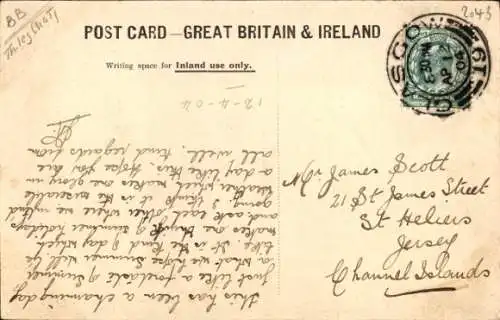 BB
2043
POST CARD—GREAT BRITAIN & IRELAND
Writing space for Inland use only.
GLASGOW 19
AP 12
04
12-4-04
this has been a charming day
just like a foretaste of summer
what we hope summer will be
like. It is the kind of day which
makes one think of summer holidays
and ask each other where we intend
going. I think it is miserable
weather which makes one glory in
a day like this. Hope you are
all well. Kind regards from
Mr James Scott
21 St James Street
St Heliers
Jersey
Channel Islands